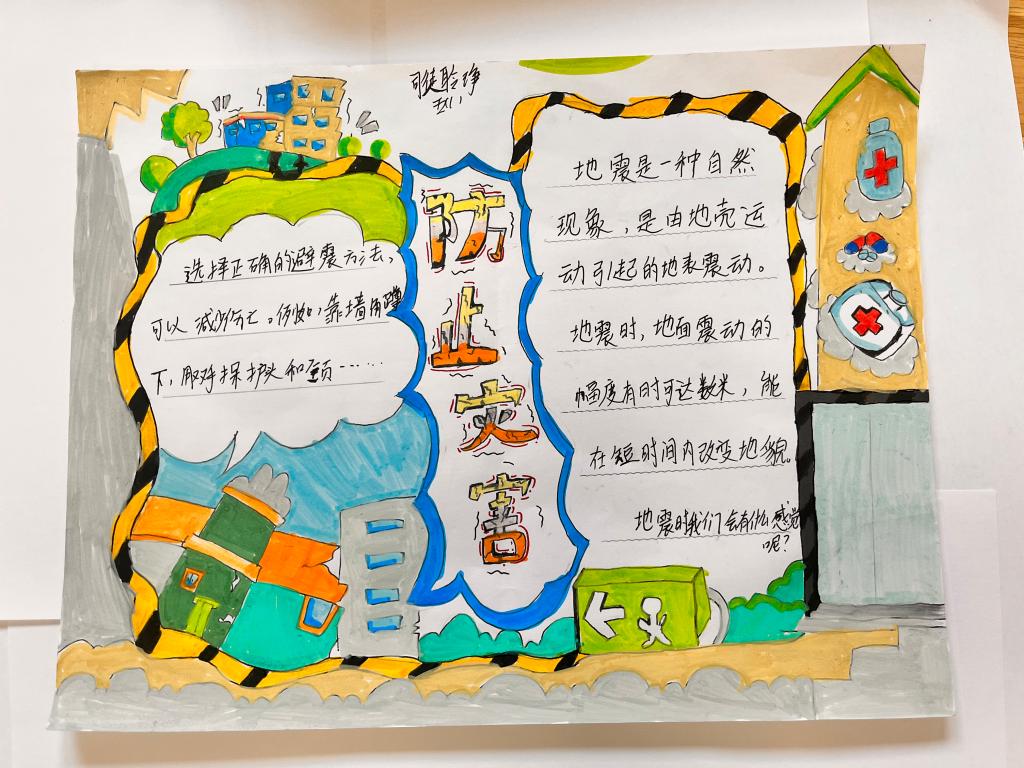 司徒聆
防止灾害
选择正确的避震方法，
可以减少伤亡。例如，靠墙角蹲
下，用手保护头和颈……
地震是一种自然
现象，是由地壳运
动引起的地表震动。
地震时，地面震动的
幅度有时可达数米，能
在短时间内改变地貌。
地震时我们会有什么感觉
呢？